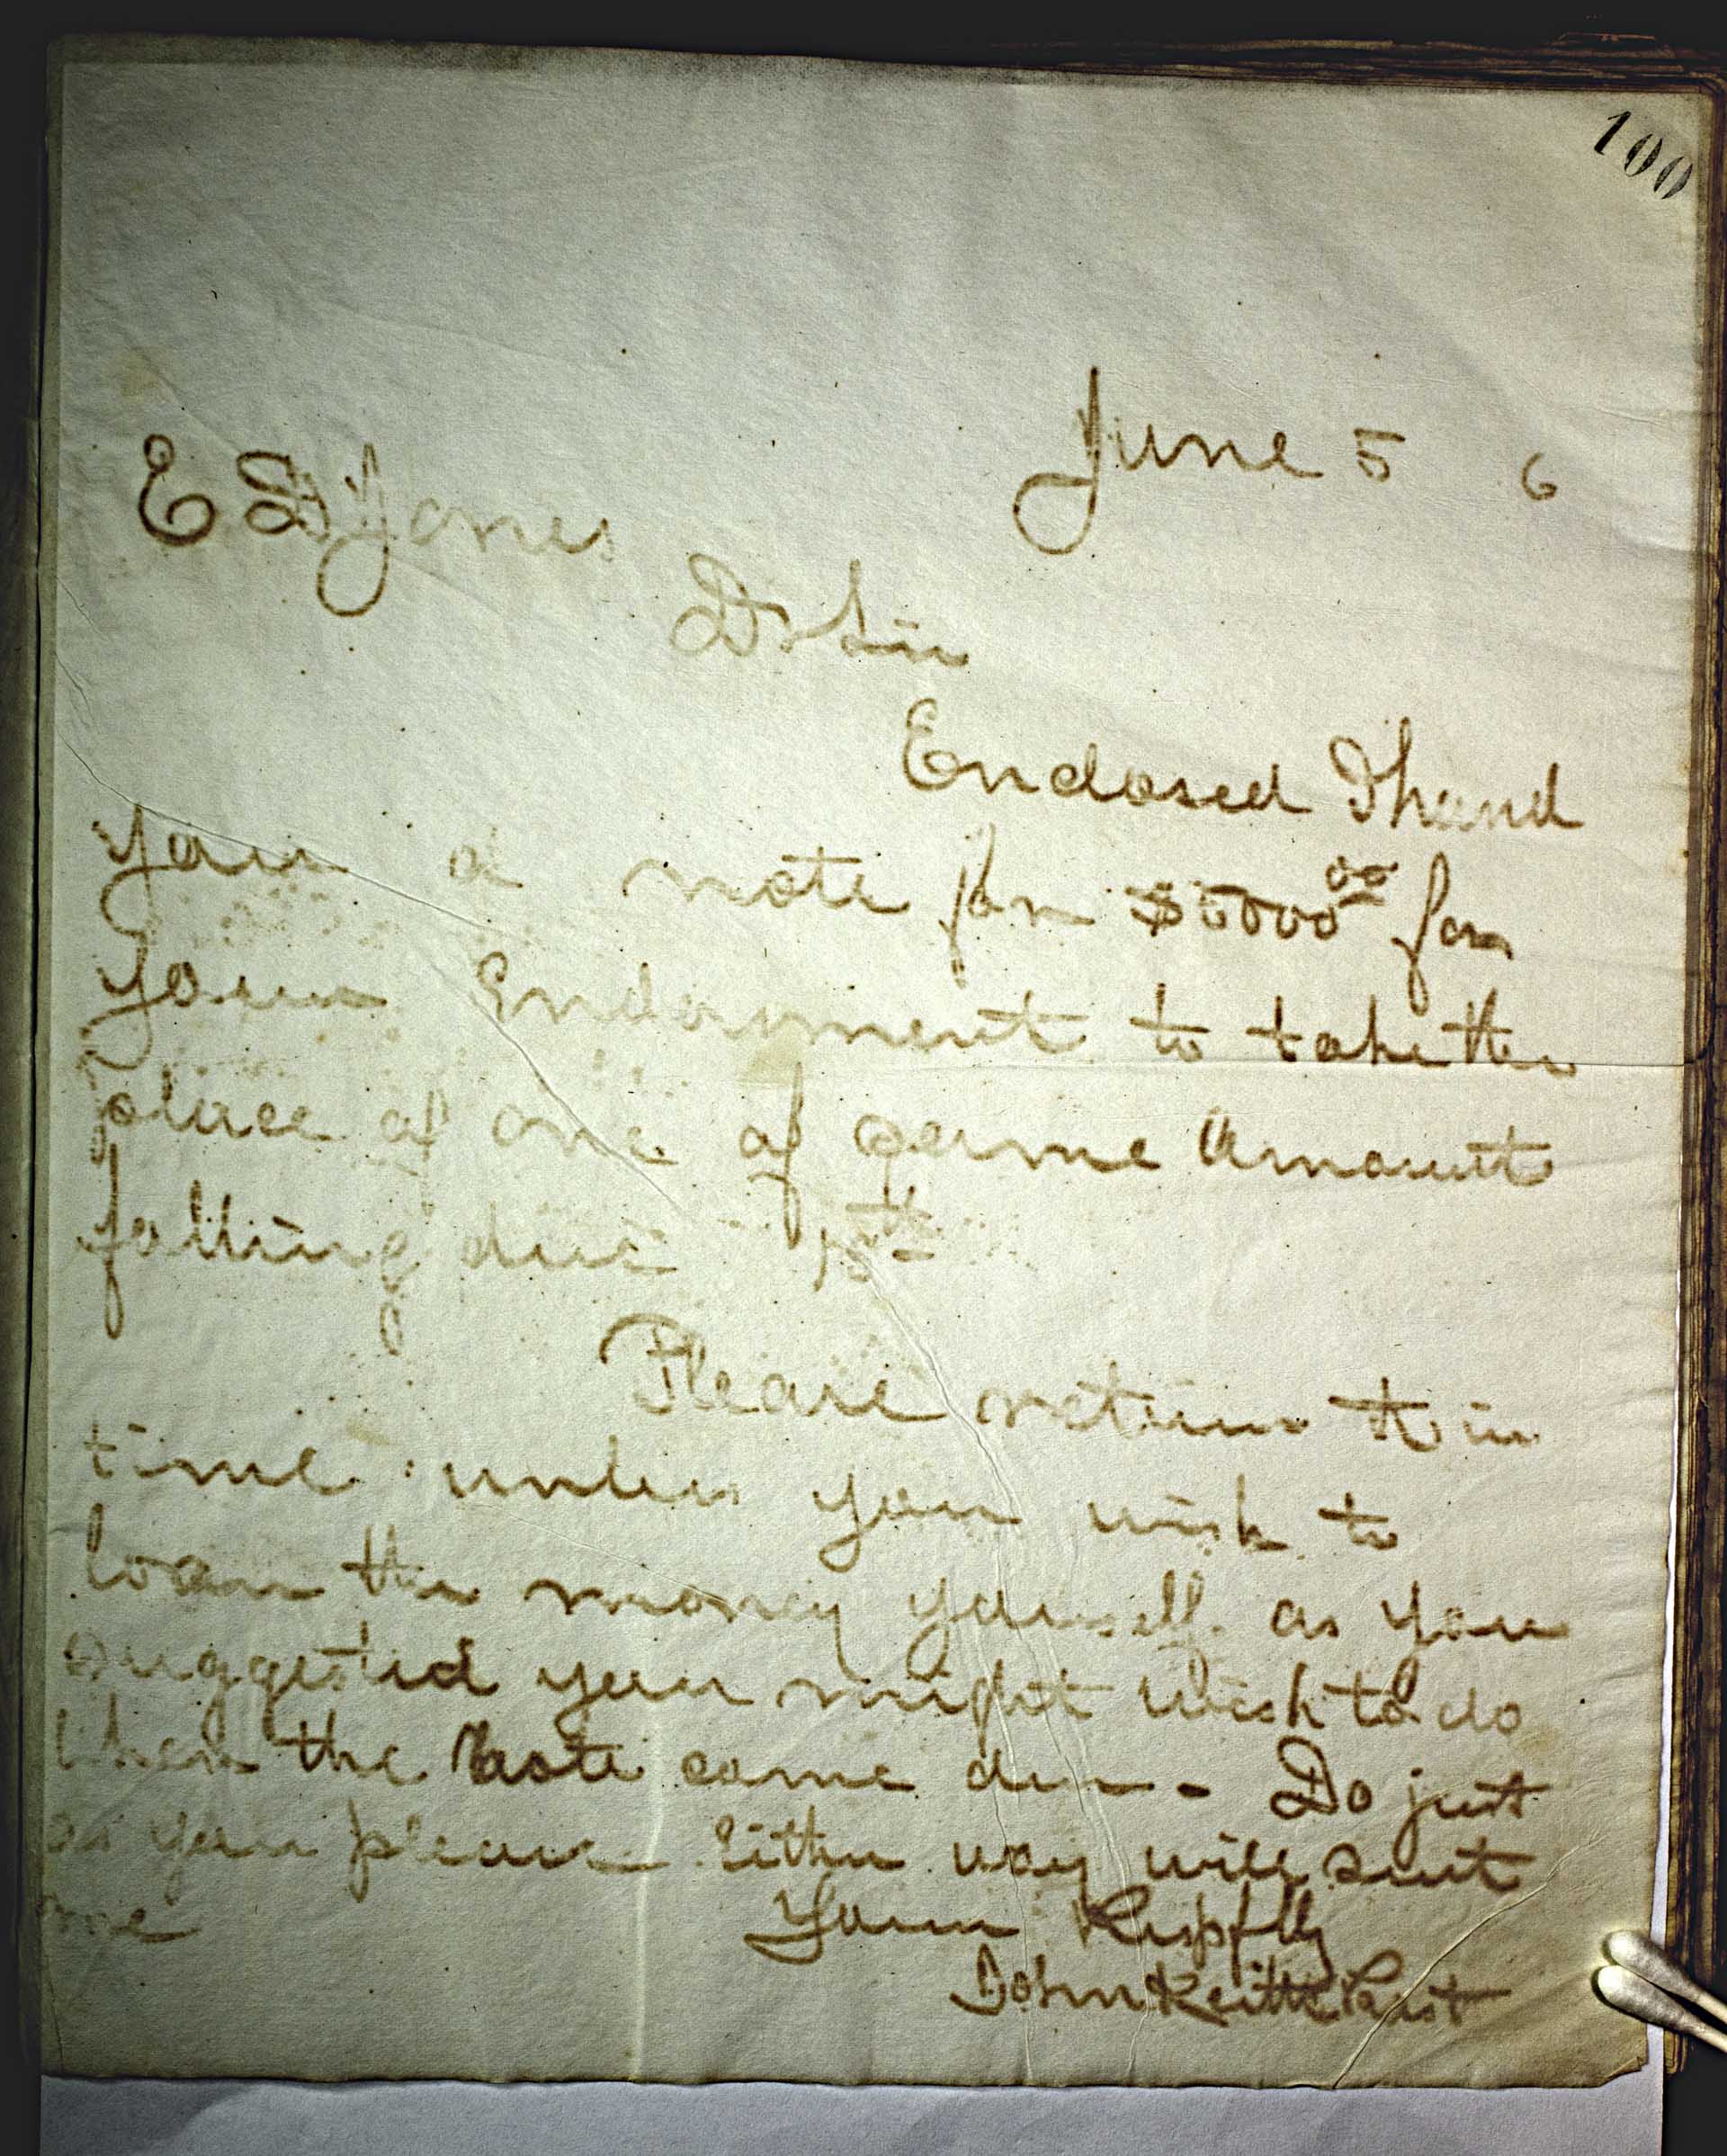 100
June 5 6
E D Jones
Dr Sir
Enclosed I hand
you a note for $5000 00 for
your Endorsment to take the
place of one of same amount
falling due 15th
Please return it in
time unless you wish to
loan the money yourself as you
suggested you might wish to do
when the note came due - Do just
as you please Either way will suit
me
Yours Respflly
John Keith Prest